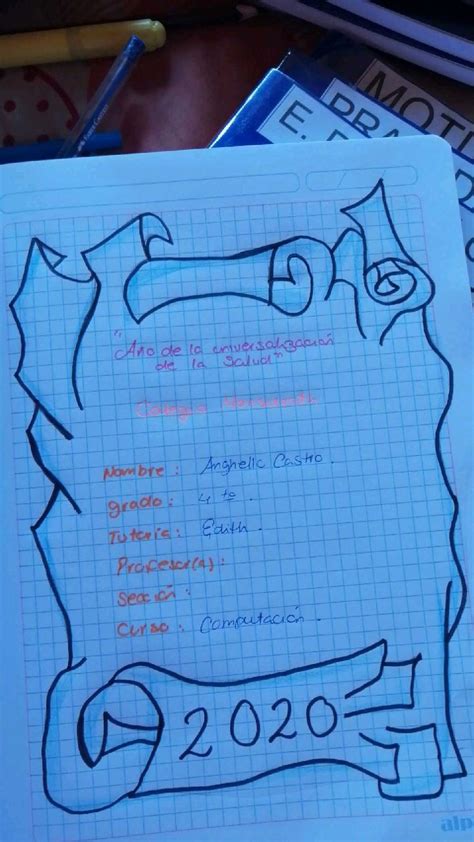 MOTI
PRA
E.
"Año de la universalización
de la Salud"
Colegio
Nombre : Anghelic Castro.
grado : 4 to.
Tutoria : Edith.
Profesor(a) :
Sección :
Curso : Computación.
2020
alp